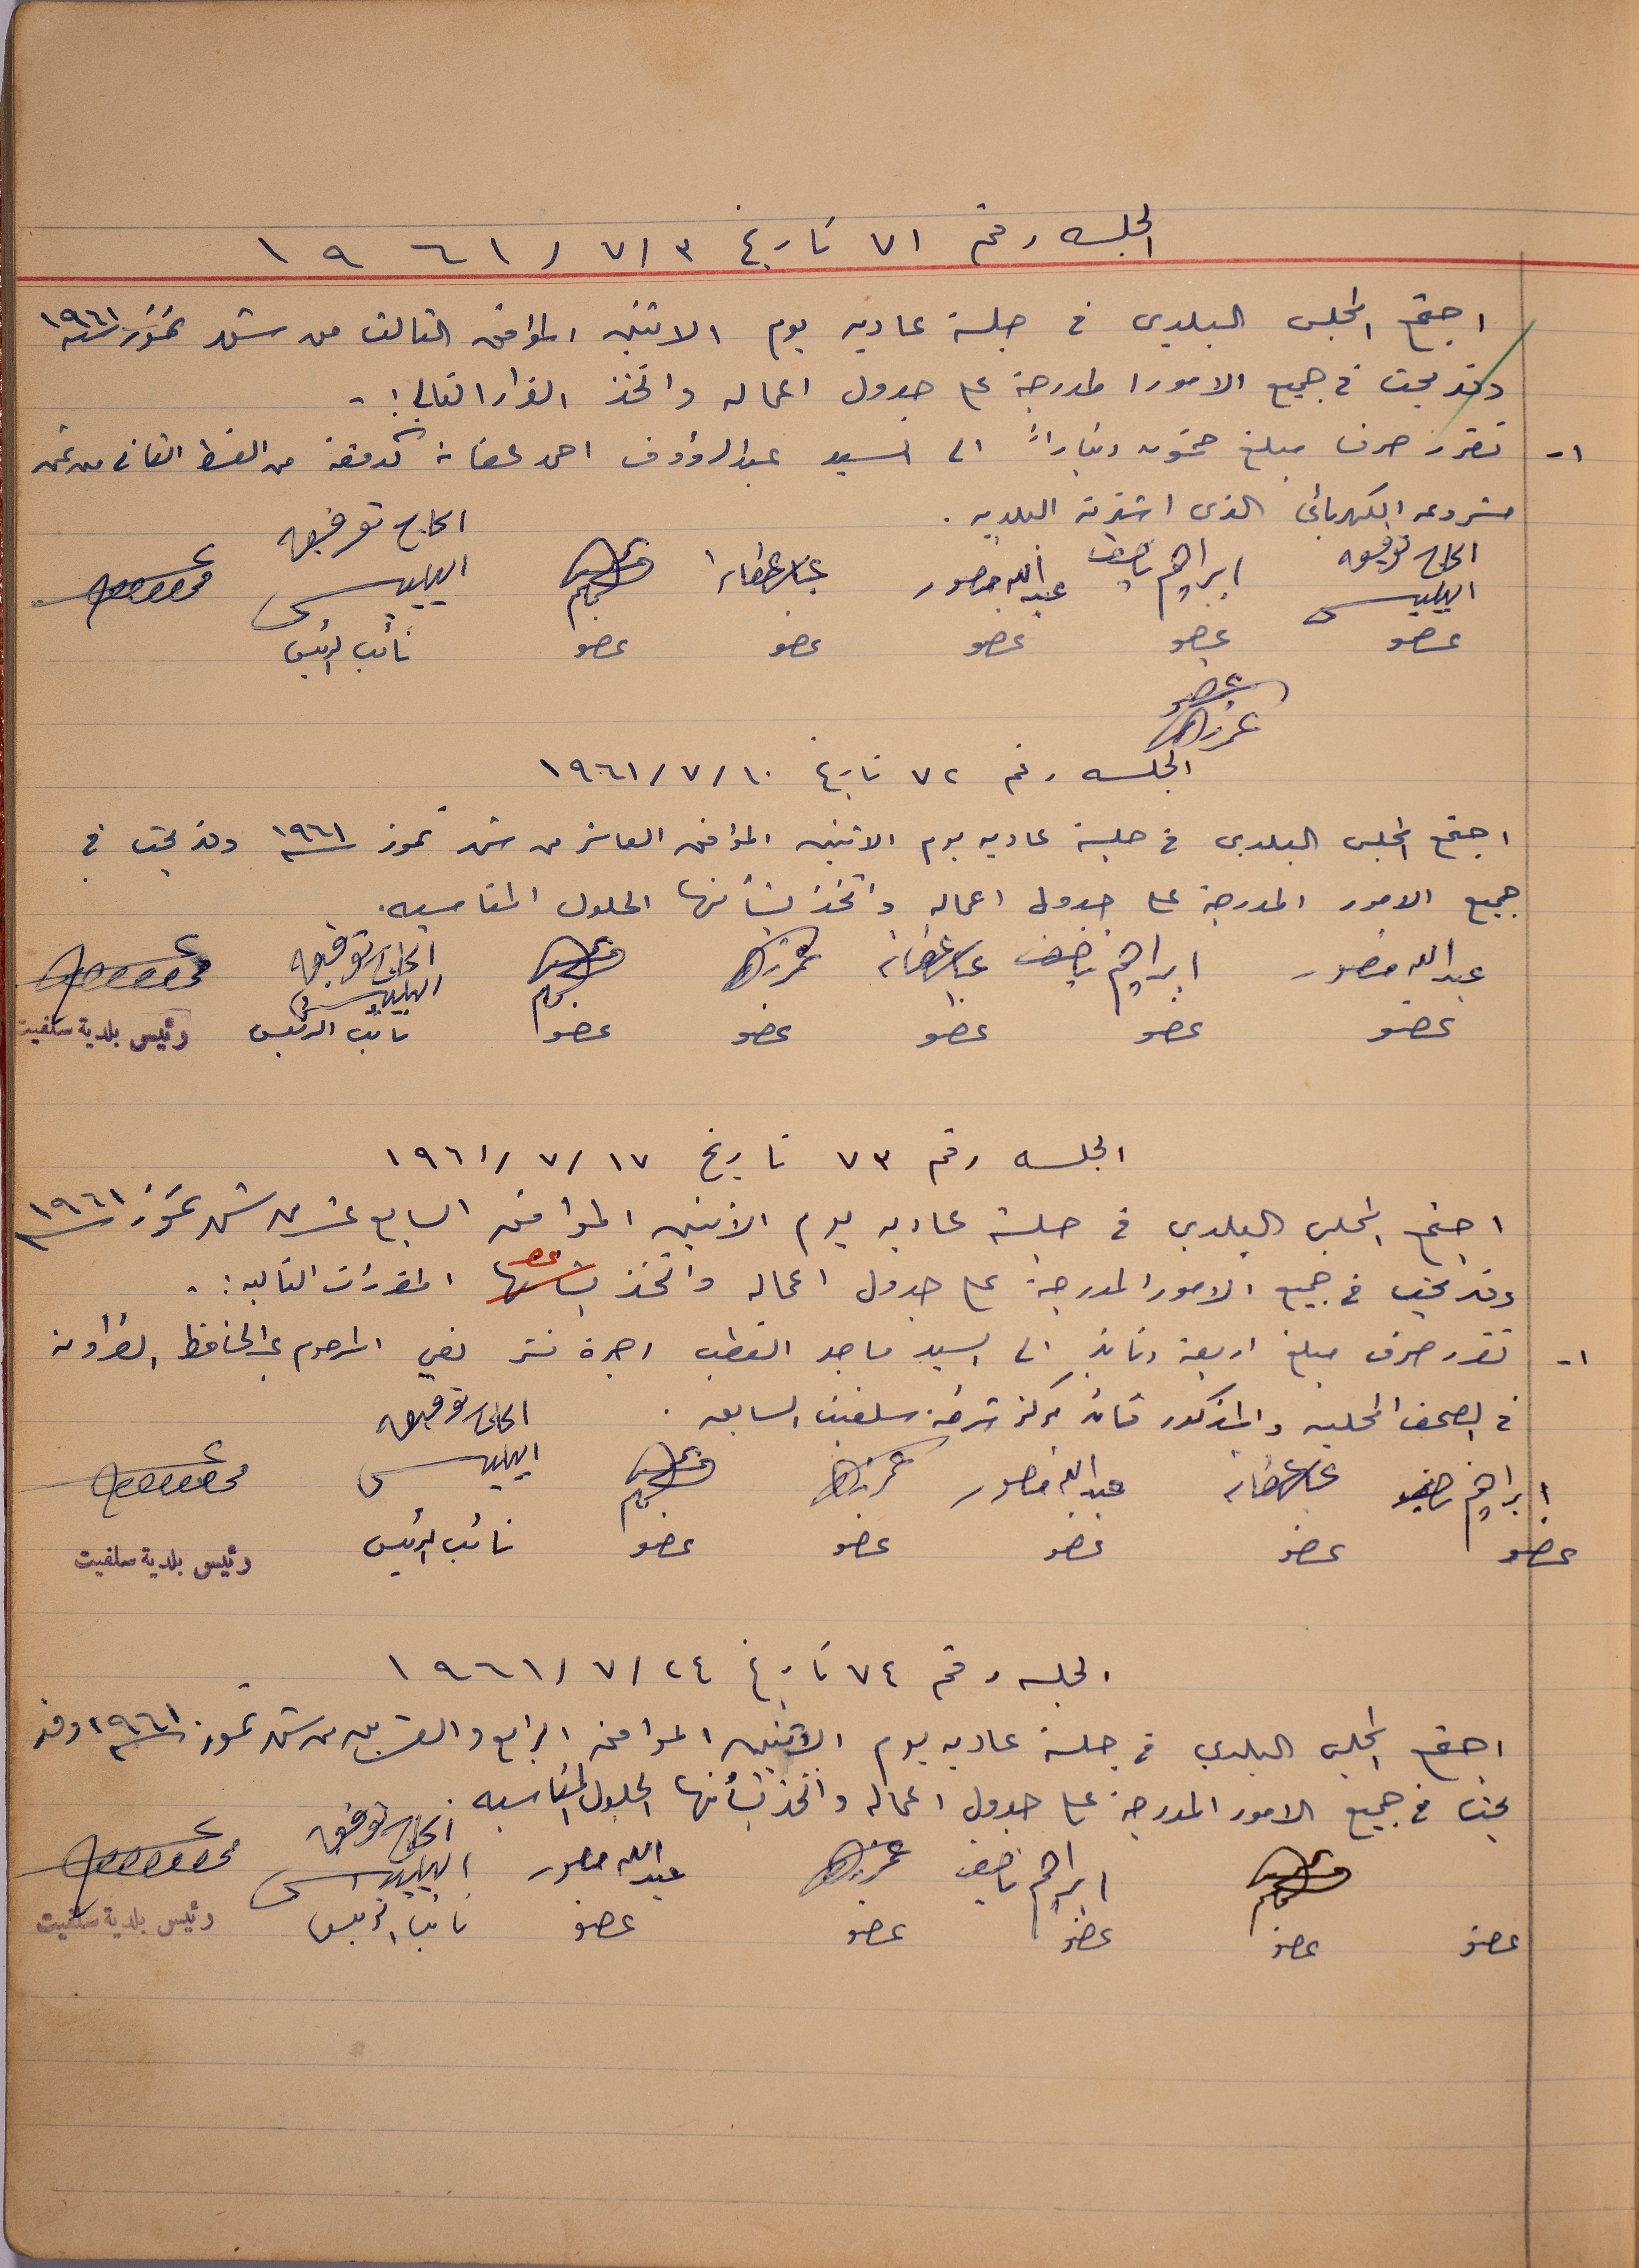 الجلسه رقم ٧١ تاريخ ٣/٧/١٩٦١
اجتمع المجلس البلدي في جلسة عاديه يوم الاثنين الموافق الثالث من شهر تموز سنة ١٩٦١
وقد بحث في جميع الامور المدرجة على جدول اعماله واتخذ القرار التالي :-
١- تقرر صرف مبلغ خمسون ديناراً الى السيد عبد الرؤوف احمد عفانه كدفعه من القسط الثاني من ثمن
مشروعه الكهربائي الذى اشترته البلديه .
الحاج توفيق ابراهيم ناصيف عبد الله منصور الحاج توفيق
عضو عضو عضو عضو عضو نائب الرئيس
عضو
الجلسه رقم ٧٢ تاريخ ١٠/٧/١٩٦١
اجتمع المجلس البلدي في جلسة عاديه يوم الاثنين الموافق العاشر من شهر تموز سنة ١٩٦١ وقد بحث في
جميع الامور المدرجة على جدول اعماله واتخذ بشأنها الحلول المناسبه .
عبد الله منصور ابراهيم ناصيف الحاج توفيق
عضو عضو عضو عضو عضو نائب الرئيس رئيس بلدية سلفيت
الجلسه رقم ٧٣ تاريخ ١٧/٧/١٩٦١
اجتمع المجلس البلدي في جلسة عاديه يوم الاثنين الموافق السابع عشر من شهر تموز سنة ١٩٦١
وقد بحث في جميع الامور المدرجة على جدول اعماله واتخذ بشأنها المقررات التاليه :-
١- تقرر صرف مبلغ اربعة دنانير الى السيد ماجد القطب اجرة نشر نعي المرحوم عبد الحافظ
في الصحف المحليه والمذكور قائد مركز شرطة سلفيت السابق .
ابراهيم ناصيف عبد الله منصور الحاج توفيق
عضو عضو عضو عضو عضو نائب الرئيس رئيس بلدية سلفيت
الجلسه رقم ٧٤ تاريخ ٢٤/٧/١٩٦١
اجتمع المجلس البلدي في جلسة عاديه يوم الاثنين الموافق الرابع والعشرين من شهر تموز سنة ١٩٦١ وقد
بحث في جميع الامور المدرجة على جدول اعماله واتخذ بشأنها الحلول المناسبه .
ابراهيم ناصيف عبد الله منصور الحاج توفيق
عضو عضو عضو عضو عضو نائب الرئيس رئيس بلدية سلفيت